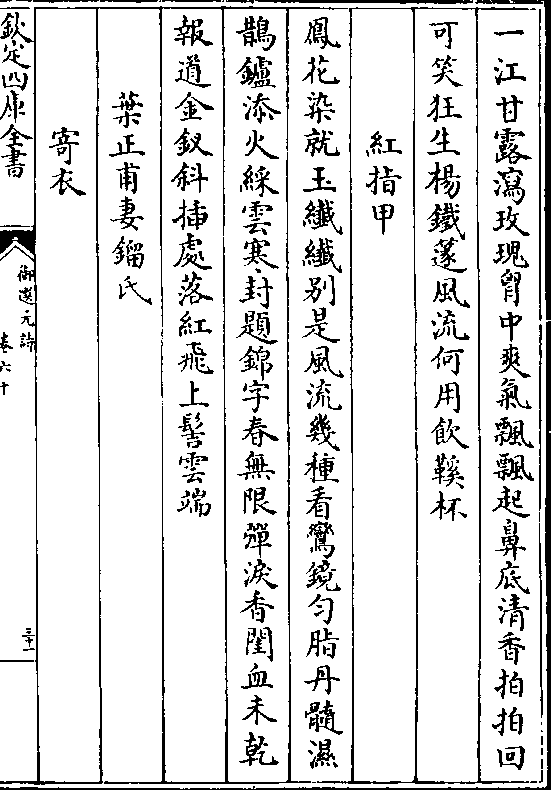 一江甘露瀉玫瑰胷中爽氣飄飄起鼻底清香拍拍回
可笑狂生楊鐵篴風流何用飲鞵杯
紅指甲
鳳花染就玉纖纖别是風流幾種看鸞鏡勻脂丹髓濕
鵲鑪添火綵雲寒封題錦字春無限彈淚香閨血未乾
報道金釵斜揷處落紅飛上髻雲端
葉正甫妻鎦氏
寄衣
欽定四庫全書
御選元詩
卷六十
三十一